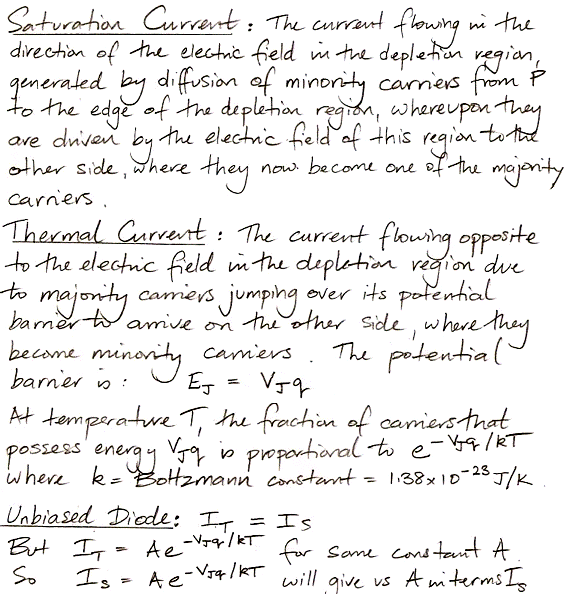 Saturation Current : The current flowing in the
direction of the electric field in the depletion region,
generated by diffusion of minority carriers from P
to the edge of the depletion region, whereupon they
are driven by the electric field of this region to the
other side, where they now become one of the majority
carriers.
Thermal Current : The current flowing opposite
to the electric field in the depletion region due
to majority carriers jumping over its potential
barrier to arrive on the other side, where they
become minority carriers. The potential
barrier is : E_J = V_J q
At temperature T, the fraction of carriers that
possess energy V_J q is proportional to e^{-V_J q/kT}
where k = Boltzmann constant = 1.38 x 10^{-23} J/K
Unbiased Diode: I_T = I_S
But I_T = A e^{-V_J q/kT} for some constant A.
So I_S = A e^{-V_J q/kT} will give us A in terms I_S